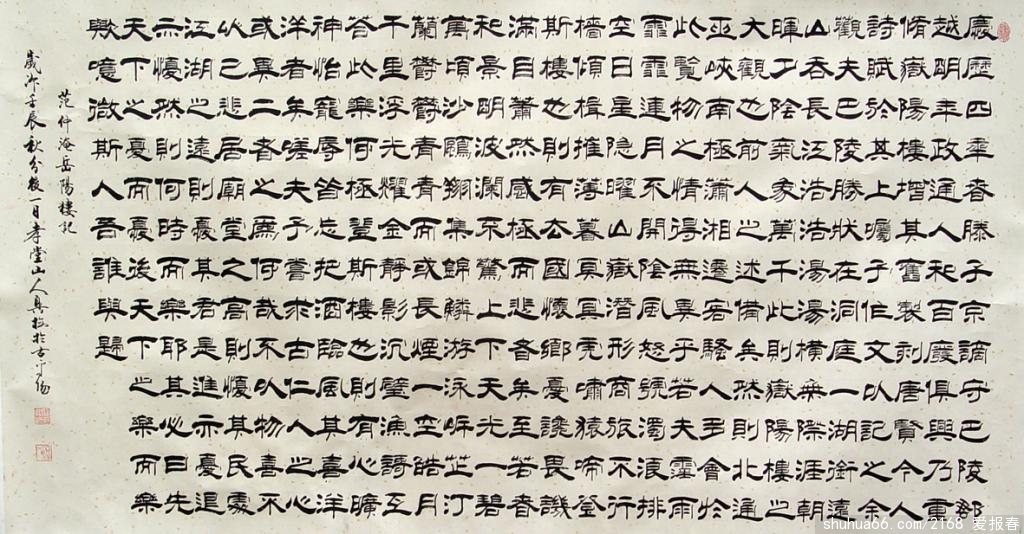 慶歷四年春滕子京謫守巴陵郡
越明年政通人和百廢俱興乃重
脩嶽陽樓增其舊製刻唐賢今人
詩賦於其上囑予作文以記之余
觀夫巴陵勝狀在洞庭一湖銜遠
山吞長江浩浩湯湯橫無際涯朝
暉夕陰氣象萬千此則嶽陽樓之
大觀也前人之述備矣然則北通
巫峽南極瀟湘遷客騷人多會於
此覽物之情得無異乎若夫霪雨
霏霏連月不開陰風怒號濁浪排
空日星隱曜山嶽潛形商旅不行
檣傾楫摧薄暮冥冥虎嘯猿啼登
斯樓也則有去國懷鄉憂讒畏譏
滿目蕭然感極而悲者矣至若春
和景明波瀾不驚上下天光一碧
萬頃沙鷗翔集錦鱗游泳岸芷汀
蘭鬱鬱青青而或長煙一空皓月
千里浮光耀金靜影沉璧漁歌互
答此樂何極登斯樓也則有心曠
神怡寵辱皆忘把酒臨風其喜洋
洋者矣嗟夫予嘗求古仁人之心
或異二者之爲何哉不以物喜不
以己悲居廟堂之高則憂其民處
江湖之遠則憂其君是進亦憂退
亦憂然則何時而樂耶其必曰先
天下之憂而憂後天下之樂而樂
歟噫微斯人吾誰與歸
范仲淹岳陽樓記
歲次壬辰秋分後一日孝堂山人於古寧陽
shuhua66.com/2168 爱报春